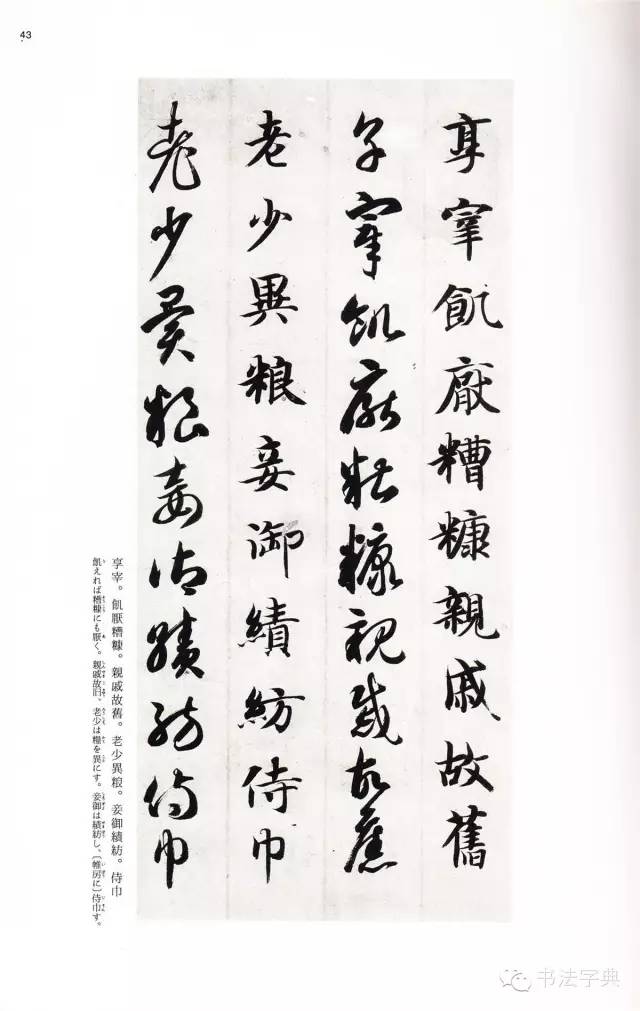 43
享宰飢厭糟糠親戚故舊
享宰飢厭糟糠親戚故舊
老少異粮妾御績紡侍巾
老少異粮妾御績紡侍巾
享宰。飢厭糟糠。親戚故舊。老少異粮。妾御績紡。侍巾
飢えれば糟糠にも厭く。親戚故旧、老少は糧を異にす。妾御は績紡し、〔帷房に〕侍巾す。
书法字典